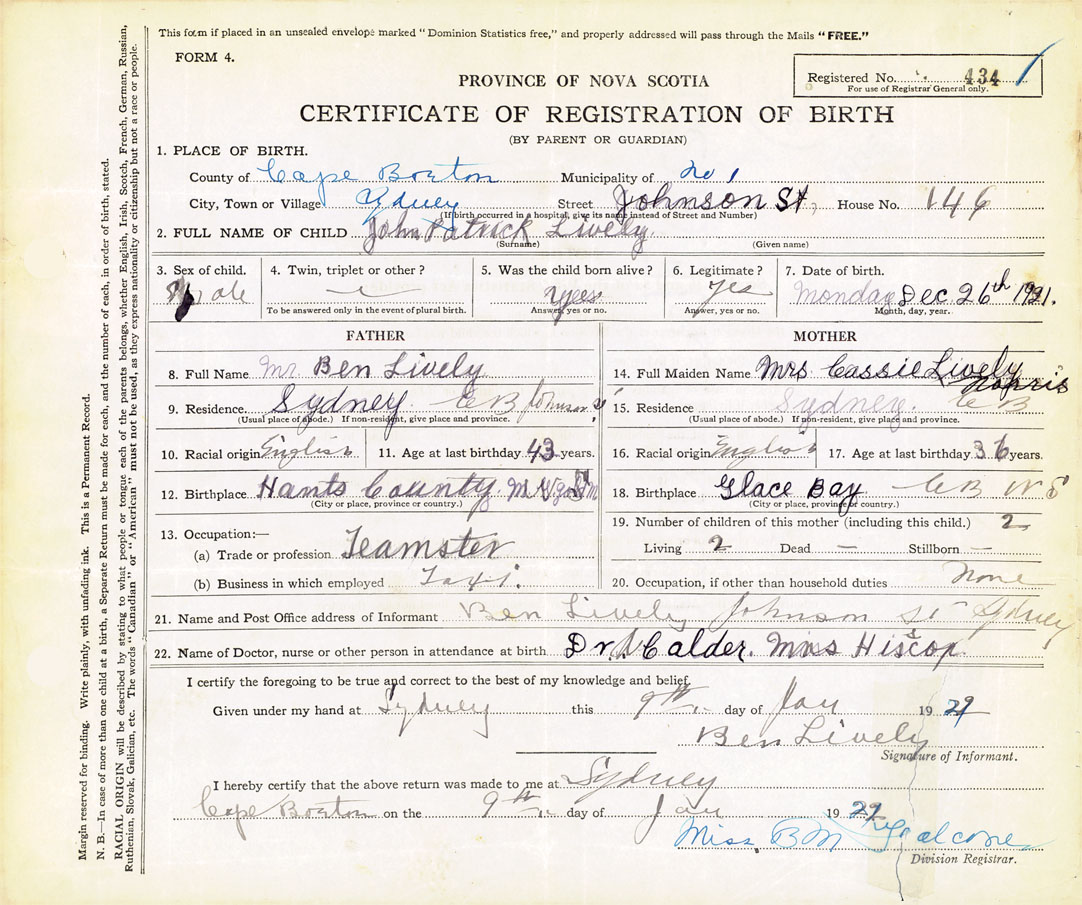 This form if placed in an unsealed envelope marked "Dominion Statistics free," and properly addressed will pass through the Mails "FREE."
FORM 4.
Registered No. 434
For use of Registrar General only.
PROVINCE OF NOVA SCOTIA
CERTIFICATE OF REGISTRATION OF BIRTH
(BY PARENT OR GUARDIAN)
1. PLACE OF BIRTH.
County of Cape Breton Municipality of No 1
City, Town or Village Sydney Street Johnson St, House No. 146
(If birth occurred in a hospital, give its name instead of Street and Number)
2. FULL NAME OF CHILD John Patrick Lively
(Surname) (Given name)
3. Sex of child. 4. Twin, triplet or other? 5. Was the child born alive? 6. Legitimate? 7. Date of birth.
Male — Yes Yes Monday Dec 26th 1921.
To be answered only in the event of plural birth. Answer, yes or no. Answer, yes or no. Month, day, year.
FATHER MOTHER
8. Full Name Mr Ben Lively 14. Full Maiden Name Mrs Cassie Lively
Norris
9. Residence Sydney. C B Johnson 15. Residence Sydney. C B
(Usual place of abode.) If non-resident, give place and province. (Usual place of abode.) If non-resident, give place and province.
10. Racial origin English 11. Age at last birthday 43 years. 16. Racial origin English 17. Age at last birthday 36 years.
12. Birthplace Hants County. 18. Birthplace Glace Bay C B N S
(City or place, province or country.) (City or place, province or country.)
19. Number of children of this mother (including this child.) 2
13. Occupation:—
Living 2 Dead — Stillborn —
(a) Trade or profession Teamster
(b) Business in which employed Taxi. 20. Occupation, if other than household duties None
21. Name and Post Office address of Informant Ben Lively Johnson St Sydney
22. Name of Doctor, nurse or other person in attendance at birth Dr. Calder. Miss Hiscox
I certify the foregoing to be true and correct to the best of my knowledge and belief.
Given under my hand at Sydney this 9th day of Jan 1929
Ben Lively
Signature of Informant.
I hereby certify that the above return was made to me at Sydney
Cape Breton on the 9th day of Jan 1929
Miss B M
Division Registrar.
Margin reserved for binding. Write plainly, with unfading ink. This is a Permanent Record.
N. B.—In case of more than one child at a birth, a Separate Return must be made for each, and the number of each, in order of birth, stated.
RACIAL ORIGIN will be described by stating to what people or tongue each of the parents belongs, whether English, Irish, Scotch, French, German, Russian,
Ruthenian, Slovak, Galician, etc. The words "Canadian" or "American" must not be used, as they express nationality or citizenship but not a race or people.